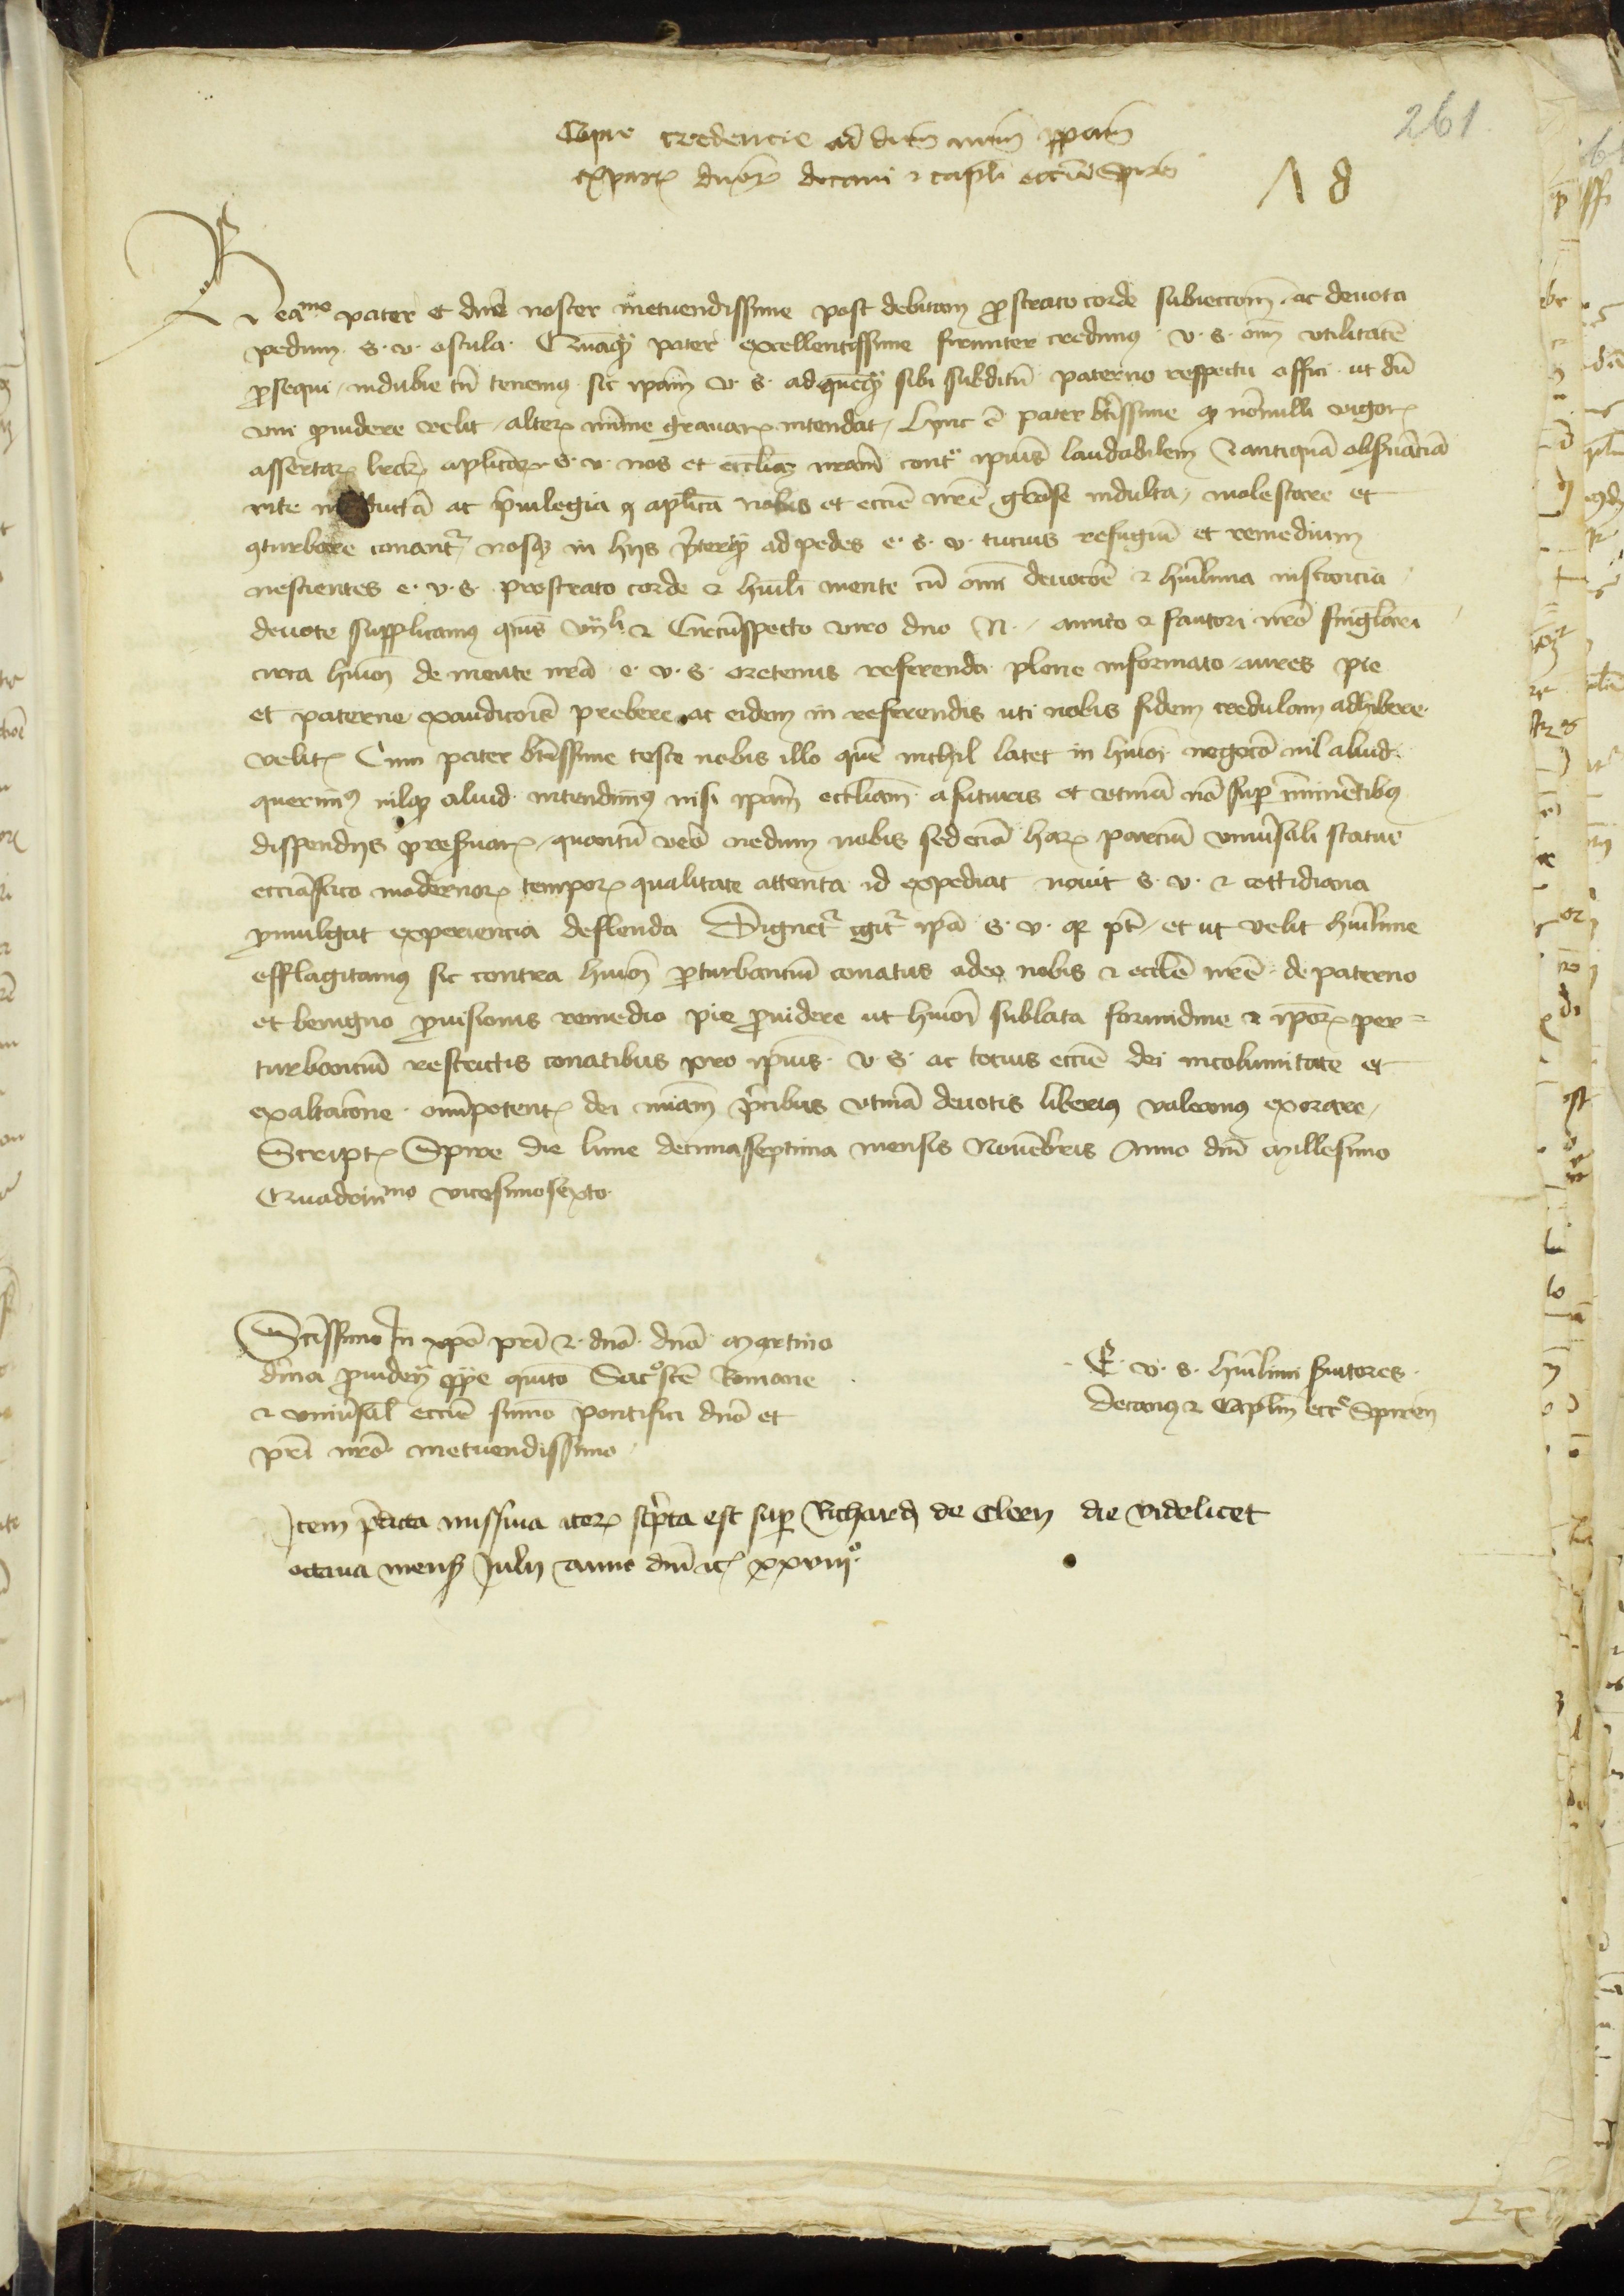 261
Copie credencie ad dnm nrm ppam
ex parte dnorum decani et capli eccie Spiren
Beamo pater et dne noster metuendissime post debitam prostrato corde subieccom ac deuota
pedum s. v. oscula. Quamquam pater excellentissime firmiter credimus v. s. oim vtilitatē
prosequi indubie tn tenemus sic ipam v. s. ad quemque sibi subditū paterno respectu affici ut dū
vni prouidere velit alterum minime grauare intendat Hinc ē pater btissime quod nonnulli vigore
assertarum aplicarum s. v. nos et eccliam nram contra ipius laudabilem et antiquā obseruanciā
rite ac priuilegia aplica nobis et eccie nrē indulta molestare et
conturbare conantur nosque in hijs preterquam ad pedes e. s. v. tucius refugiū et remedium
nescientes e. v. s. prostrato corde et humili mente cū omi deuocōe et hūilima instancia
deuote supplicamus Circūspecto viro dno N. amico et fautori nrō singlari
circa hmoi de mente nrā e. v. s. oretenus referenda plene informato aures pie
et paterne exaudicois prebere ac eidem in referendis uti nobis fidem credulam adhibere
velit Cum pater btissime teste nobis illo quē nichil latet in hmoi negocō nil aliud
querimus nilque aliud intendimus nisi ipam eccliam a futuris et vtinā nō super iminētibus
dispendijs preseruare quantū vero nedum nobis sed eciā harum parciū vniuersali statui
ecciastico modernorum temporum qualitate attenta id expediat nouit s. v. et cottidiana
promulgat experiencia deflenda Dignetur igitur ipa s. v. et ut velit huilime
efflagitamus sic contra hmoi perturbanciū conatus adeo nobis et ecclē nrē de paterno
et benigno prouisionis remedio pie prouidere ut hmoi sublata formidine et iporum per=
turbanciū restrictis conatibus pro ipius v. s. ac tocius eccie dei incolumitate et
exaltacione omipotentis dei miam precibus vtinā deuotis liberius valeamus exorare
Scriptum Spire die lune decimaseptima mensis Nouēbris Anno dni Millesimo
Quadrinmo vicesimosexto
Sctissimo In xpō pri et dnō dnō Martino
diuina prouidencia ppe quīto Sacrosctē Romane
et vniuersal eccie sūmo pontifici dnō et
pri nrō metuendissimo
E. v. s. huilimi seruitores
Decanus et Caplm ecce Spiren
Item pdicta missiua iterum scripta est super Richard de Cleen die videlicet
octaua mensis Julij anno dni etc xxviijo